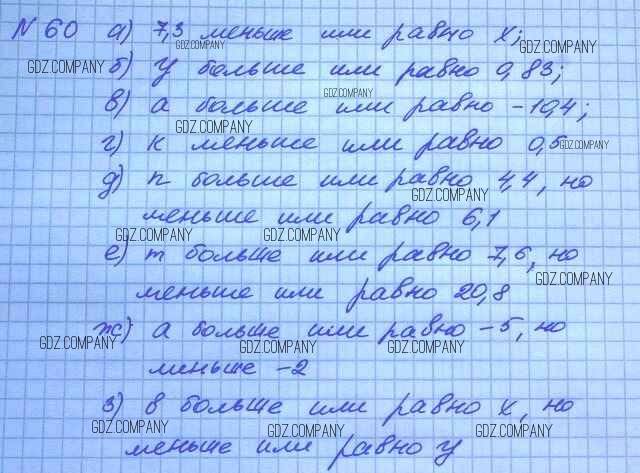 N 60 а) 7,3 меньше или равно х;
GDZ.COMPANY GDZ.COMPANY
GDZ.COMPANY б) у больше или равно 0,83;
GDZ.COMPANY
в) а больше или равно -10,4;
GDZ.COMPANY
г) к меньше или равно 0,5 GDZ.COMPANY
д) n больше или равно 4,4, но
GDZ.COMPANY
меньше или равно 6,1
GDZ.COMPANY GDZ.COMPANY
е) m больше или равно 7,6, но
GDZ.COMPANY
меньше или равно 20,8
ж) а больше или равно -5, но
GDZ.COMPANY GDZ.COMPANY GDZ.COMPANY
меньше -2
з) в больше или равно х, но
GDZ.COMPANY GDZ.COMPANY GDZ.COMPANY
меньше или равно у